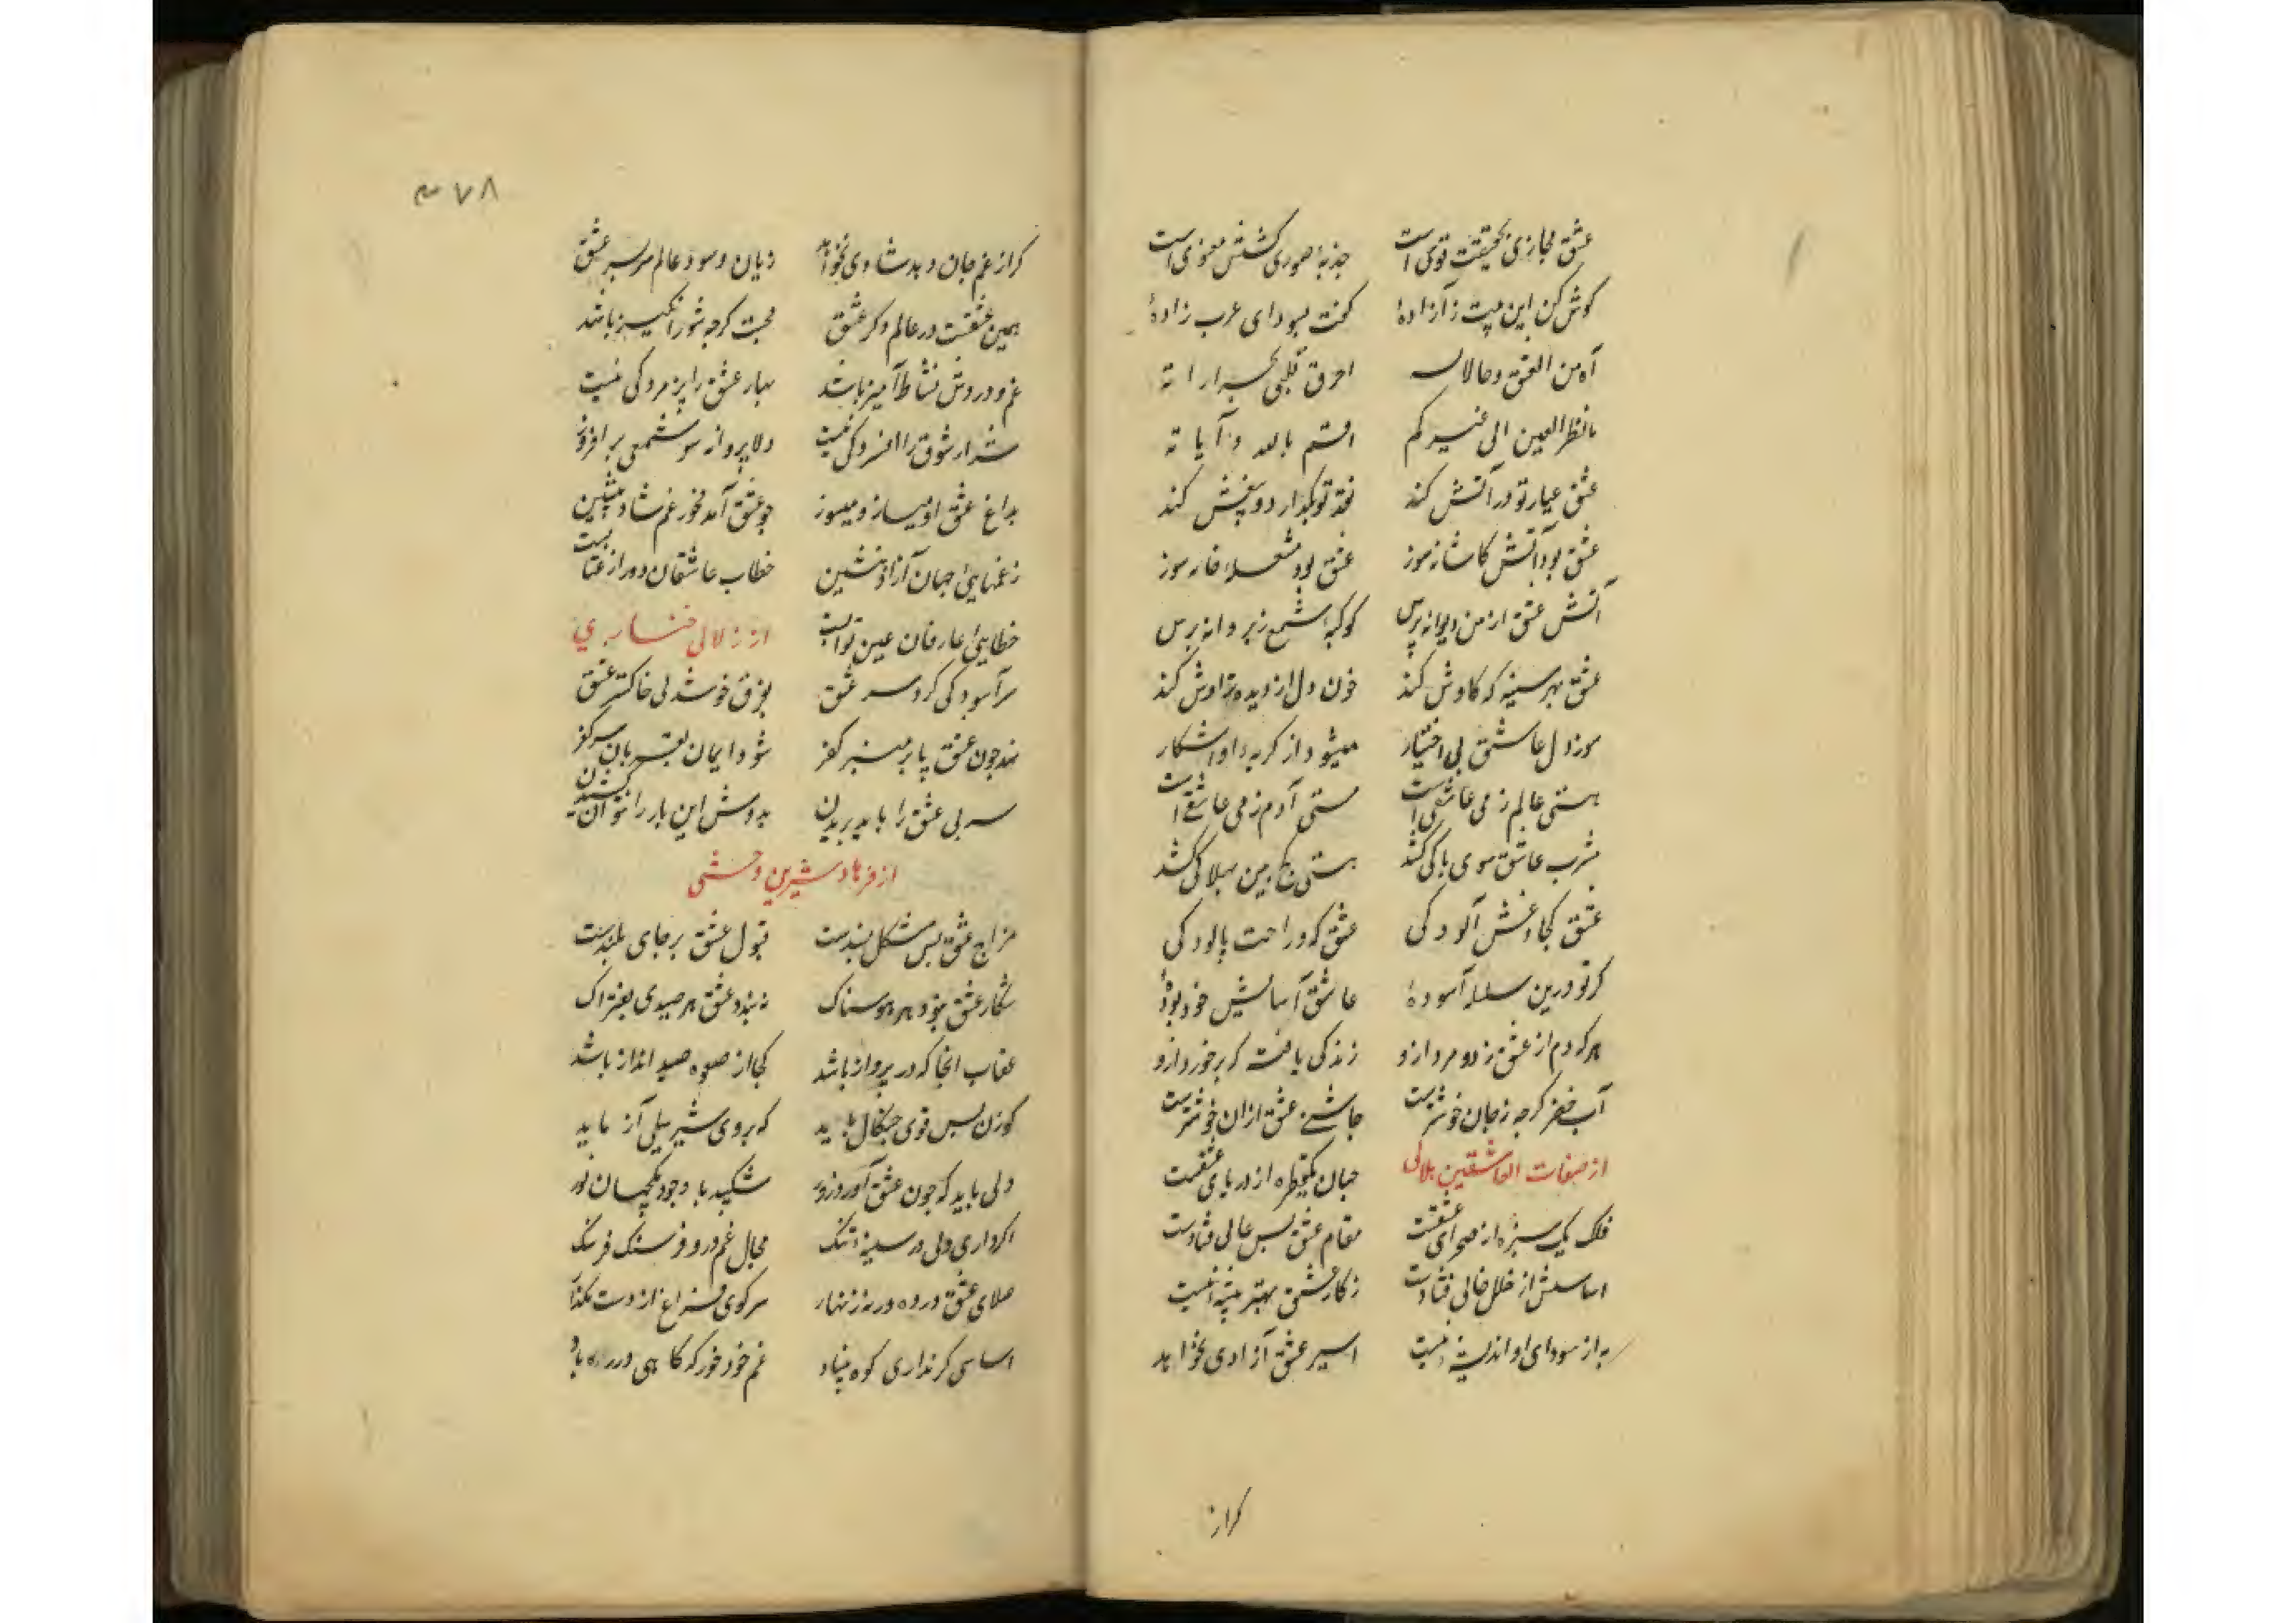 عشق مجازی بحقیقت قوی است جذبهٔ صوری کشش معنوی است
کوش کن این بیت ز آزادهٔ کفت بسودای عرب زادهٔ
آه من العشق و حالاته احرق قلبی بحراراته
ما نظر العین الی غیرکم اقسم بالله و آیاته
عشق عیار تو در آتش کند نقد تو بکدازد و بیغش کند
عشق بود آتش کاشانه سوز عشق بود مشعلهٔ خانه سوز
آتش عشق از من دیوانه پرس کوکبهٔ شمع ز پروانه پرس
عشق بهر سینه که کاوش کند خون دل از دیده تراوش کند
سوز دل عاشق بی اختیار میشود از کریهٔ او اشکار
هستی عالم ز می عاشقی است مستی آدم ز می عاشقی است
مشرب عاشق سوی پاکی کشد هستی بین بهلاکی کشد
عشق کجا و غش آلودکی عشق که و راحت پالودکی
کر تو درین سلسله آسودهٔ عاشق آسایش خود بودهٔ
هر که دم از عشق زد و مرد ازو زندکی یافت که بر خورد ازو
آب خضر کرچه ز جان خوشترست چاشنی عشق ازان خوشترست
از صفات العاشقین هلالی جهان یکقطره از دریای عشقست
فلک یک سبزه از صحرای عشقست مقام عشق بس عالی فتادست
اساسش از خلل خالی فتادست ز کار عشق بهتر پیشهٔ نیست
به از سودای او اندیشهٔ نیست اسیر عشق آزادی نخواهد
کر از
۴۷۸
کر از غم جان دهد شادی نخواهد زیان و سود عالم سر بسر عشق
همین عشقست در عالم دکر عشق محبت کرچه شورانکیز باشد
غم و دردش نشاط آمیز باشد بهار عشق را پژمردکی نیست
شرار شوق را افسردکی نیست دلا پروانه سو شمعی بر افروز
بداغ عشق او میساز و میسوز چو عشق آمد مخور غم شاد بنشین
ز غمهایئ جهان آزاد بنشین خطاب عاشقان دور از عتابست
خطایئ عارفان عین ثوابست از زلالی خنساری
سر آسودکی کرد سر عشق بفرق خوشدلی خاکستر عشق
نهد چون عشق پا بر منبر کفر شود ایمان بقربان سر کفر
سر بی عشق را باید بریدن بدوش این بار را نتوان کشیدن
از فرهاد شیرین وحشی
مزاج عشق بس مشکل پسندست قبول عشق بر جای بلندست
شکار عشق نبود هر هوسناک نبندد عشق هر صیدی بفتراک
عقاب انجا که در پرواز باشد کجا از صعوه صید انداز باشد
کوزن بس قوی چنکال باید که بر وی شیر سیلی آزماید
دلی باید که چون عشق آورد زور شکیبد با وجود یکجهان شور
اکر داری دلی در سینه تنک مجال غم درو فرسنک فرسنک
صلای عشق درده ورنه زنهار سر کوی فراغ از دست مکذار
اساسی کر نداری کوه بنیاد غم خود خور که کاهی در ره باد